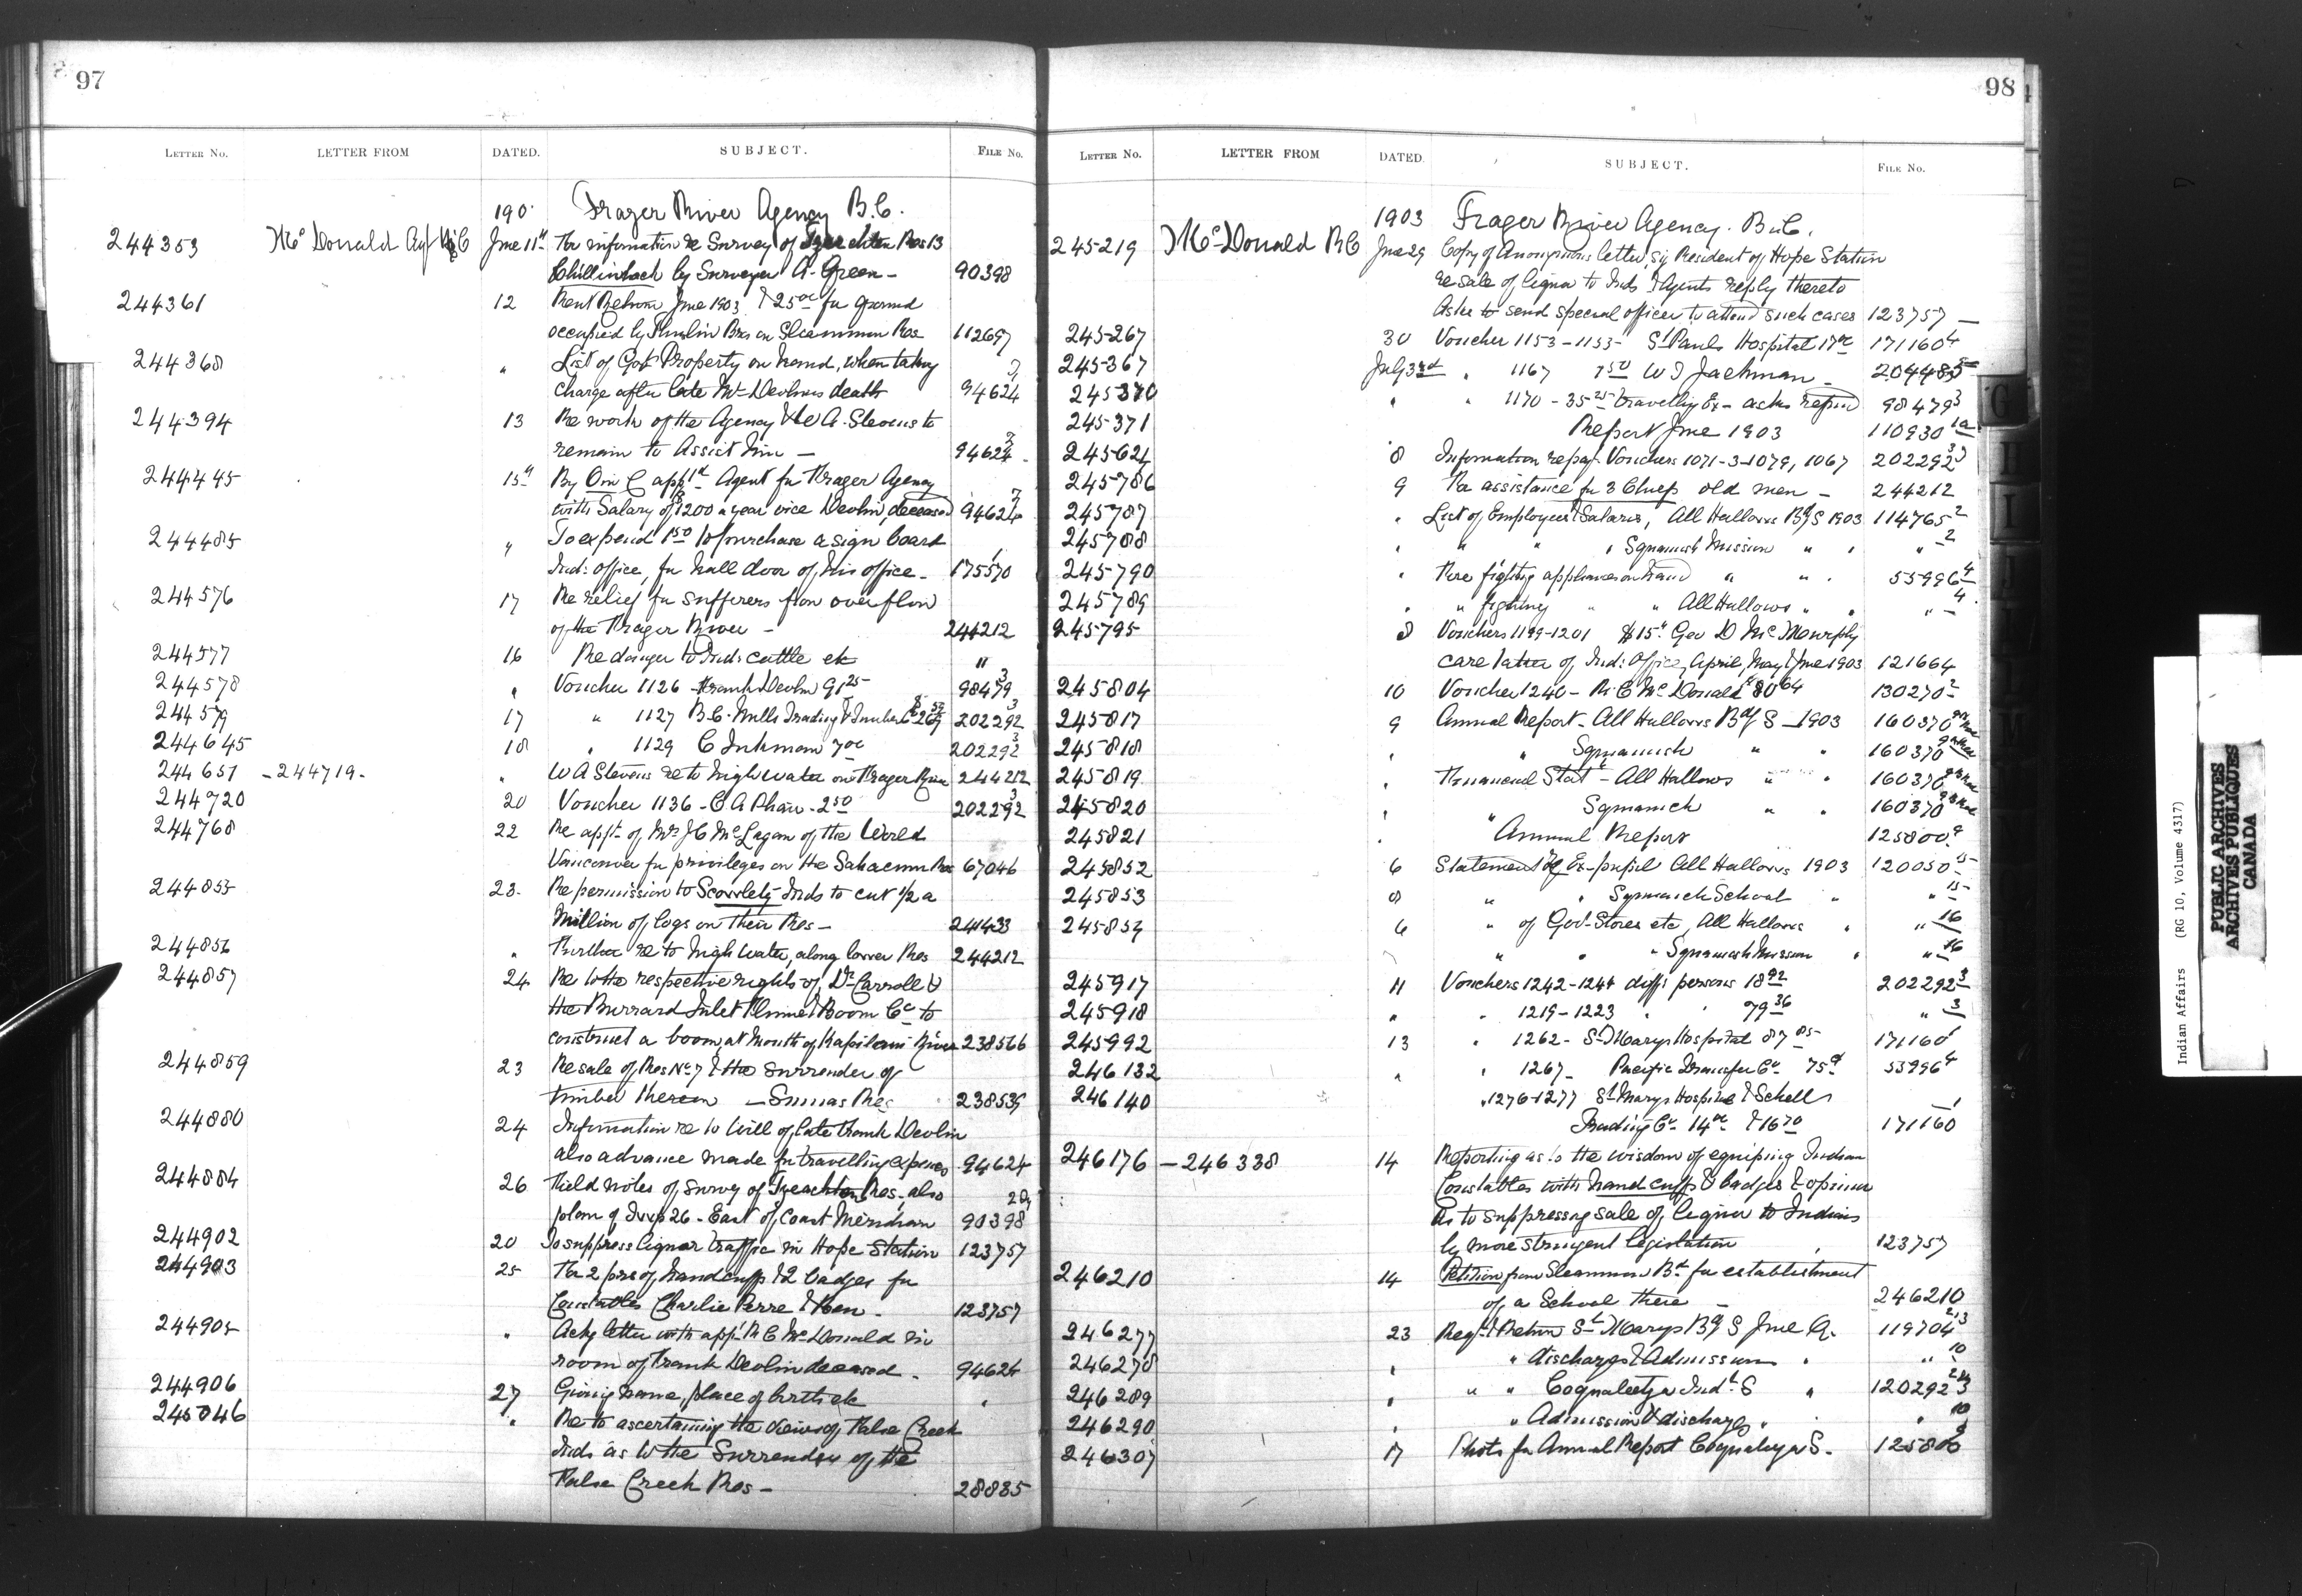 97
LETTER NO. LETTER FROM DATED. SUBJECT. FILE NO.
190 Frazer River Agency B.C.
244353 McDonald Agt June 11th For information re Survey of Res 13
by Surveyor A. Green - 90398
244361 12 Rent Return June 1903 & 25 00 for ground
occupied by Bros on Sleammon Res 112697
244368 " List of Govt Property on hand, when taking
charge after late Mr Devlins death 94624
244394 13 Re work of the Agency & W A. Stevens to
remain to Assist him - 94624
244445 15th By O in C appt Agent for Frazer Agency
with Salary of $1200 a year vice Devlin, deceased 94624
244485 " To expend 1 50 to purchase a sign board
Ind: Office, for hall door of his office - 175570
244576 17 Re relief for sufferers from overflow
of the Frazer River - 244212
244577 16 Re danger to Inds cattle etc "
244578 " Voucher 1126 Frank Devlin 91 25 98479 3
244579 17 " 1127 B.C. Mills Trading & Timber Co 202292 3
244645 18 " 1129 C Inkman 7 00 202292 3
244651 -244719- " W A Stevens re to high water on Frazer River 244212
244720 20 Voucher 1136 - C A - 2 50 202292 3
244768 22 Re appt of Mrs J C McLagan of the World
Vancouver for privileges on the Res 67046
244855 23 Re permission to Scowlitz Inds to cut 1/2 a
Million of logs on their Res - 241433
244856 " Further re to high water, along lower Res 244212
244857 24 Re to the respective rights of, Dr Carroll &
the Burrard Inlet & Boom Co to
construct a boom, at Mouth of Kapilano River 238566
244859 23 Re sale of Res No 7 & the surrender of
timber thereon - Sumas Res 238539
244880 24 Information re to Will of late Frank Devlin
also advance made for travelling expenses 94624
244884 26 Field notes of survey of Res, also
plan of Twp 26 - East of Coast Meridian 90398
244902 20 To suppress liquor traffic in Hope Station 123757
244903 25 For 2 prs of handcuffs & 2 badges for
Constables Charlie Pierre & - 123757
244905 " Ackg letter with appt R C McDonald in
room of Frank Devlin deceased - 94624
244906 27 Giving name, place of birth etc "
245046 " Re to ascertaining the views of False Creek
Inds as to the Surrender of the
False Creek Res - 28885
98
LETTER NO. LETTER FROM DATED. SUBJECT. FILE NO.
1903 Frazer River Agency. B.C.
245219 McDonald R C June 29 Copy of Anonymous letter, sig Resident of Hope Station
re sale of liquor to Inds & Agents reply thereto
Asks to send special officer to attend such cases 123757 -
245267 30 Voucher 1153 - 1155 - St Pauls Hospital 17 00 171160 4
245367 July 3rd " 1167 7 50 W J Jackman - 204485
245370 " " 1170 - 35 25 travelling Ex - asks refund 98479 3
245371 Report June 1903 110930 1a
245624 8 Information repay Vouchers 1071-3-1079, 1067 202292 3
245786 9 For assistance for 3 old men - 244212
245787 " List of Employees & Salaries, All Hallows Bdg S 1903 114765 2
245788 " " " " Squamish Mission " " " 2
245790 " Fire fighting appliances on hand " " 55996 4
245789 " " fighting " " All Hallows " " " 4
245795 8 Vouchers 1199-1201 $15 " Geo D McMurphy
care taker of Ind: Office, April, May & June 1903 121664
245804 10 Voucher 1240 - R C McDonald $80 64 130270 2
245817 9 Annual Report - All Hallows Bdg S - 1903 160370
245818 " " Squamish " " 160370
245819 " Financial Stat - All Hallows " " 160370
245820 " " Squamish " " 160370
245821 " Annual Report 125800
245852 6 Statement of Ex-pupil All Hallows 1903 120050 15
245853 8 " " Squamish School " " 15
245854 6 " of Govt Stores etc, All Hallows " " 16
" " " Squamish Mission " " 16
245917 11 Vouchers 1242-1244 diff persons 18 92 202292 3
245918 " " 1219-1223 " 79 36 " 3
245992 13 " 1262 - St Marys Hospital 87 85 171160
246132 " " 1267 - Pacific Transfer Co 75 c 55996 4
246140 " 1276-1277 St Marys Hospital & Schell
Trading Co 14 00 & 16 70 171160
246176 - 246338 14 Reporting as to the wisdom of equiping Indian
Constables with handcuffs & badges & opinion
as to suppressing sale of liquor to Indians
by more stringent legislation 123757
246210 14 Petition from Sleammon Bd for establishment
of a School there - 246210
246277 23 Regt & Return St Marys Bdg S June Q. 119704
246278 " " discharges & Admissions " " 10
246289 " " " Coqualeetza Indl S " 120292
246290 " " Admission & discharges " " 10
246307 17 Photo for Annual Report Coqualeetza S - 125800
G
I
Indian Affairs (RG 10, Volume 4317)
PUBLIC ARCHIVES
ARCHIVES PUBLIQUES
CANADA